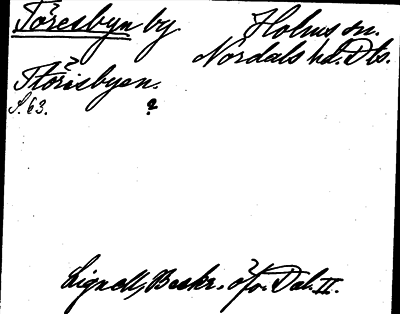 Töresbyn by Holms sn.
Nordals hd. Dls.
Thörisbyen.
S. 63. ?
Lignell, Beskr. öfv. Dal. II.